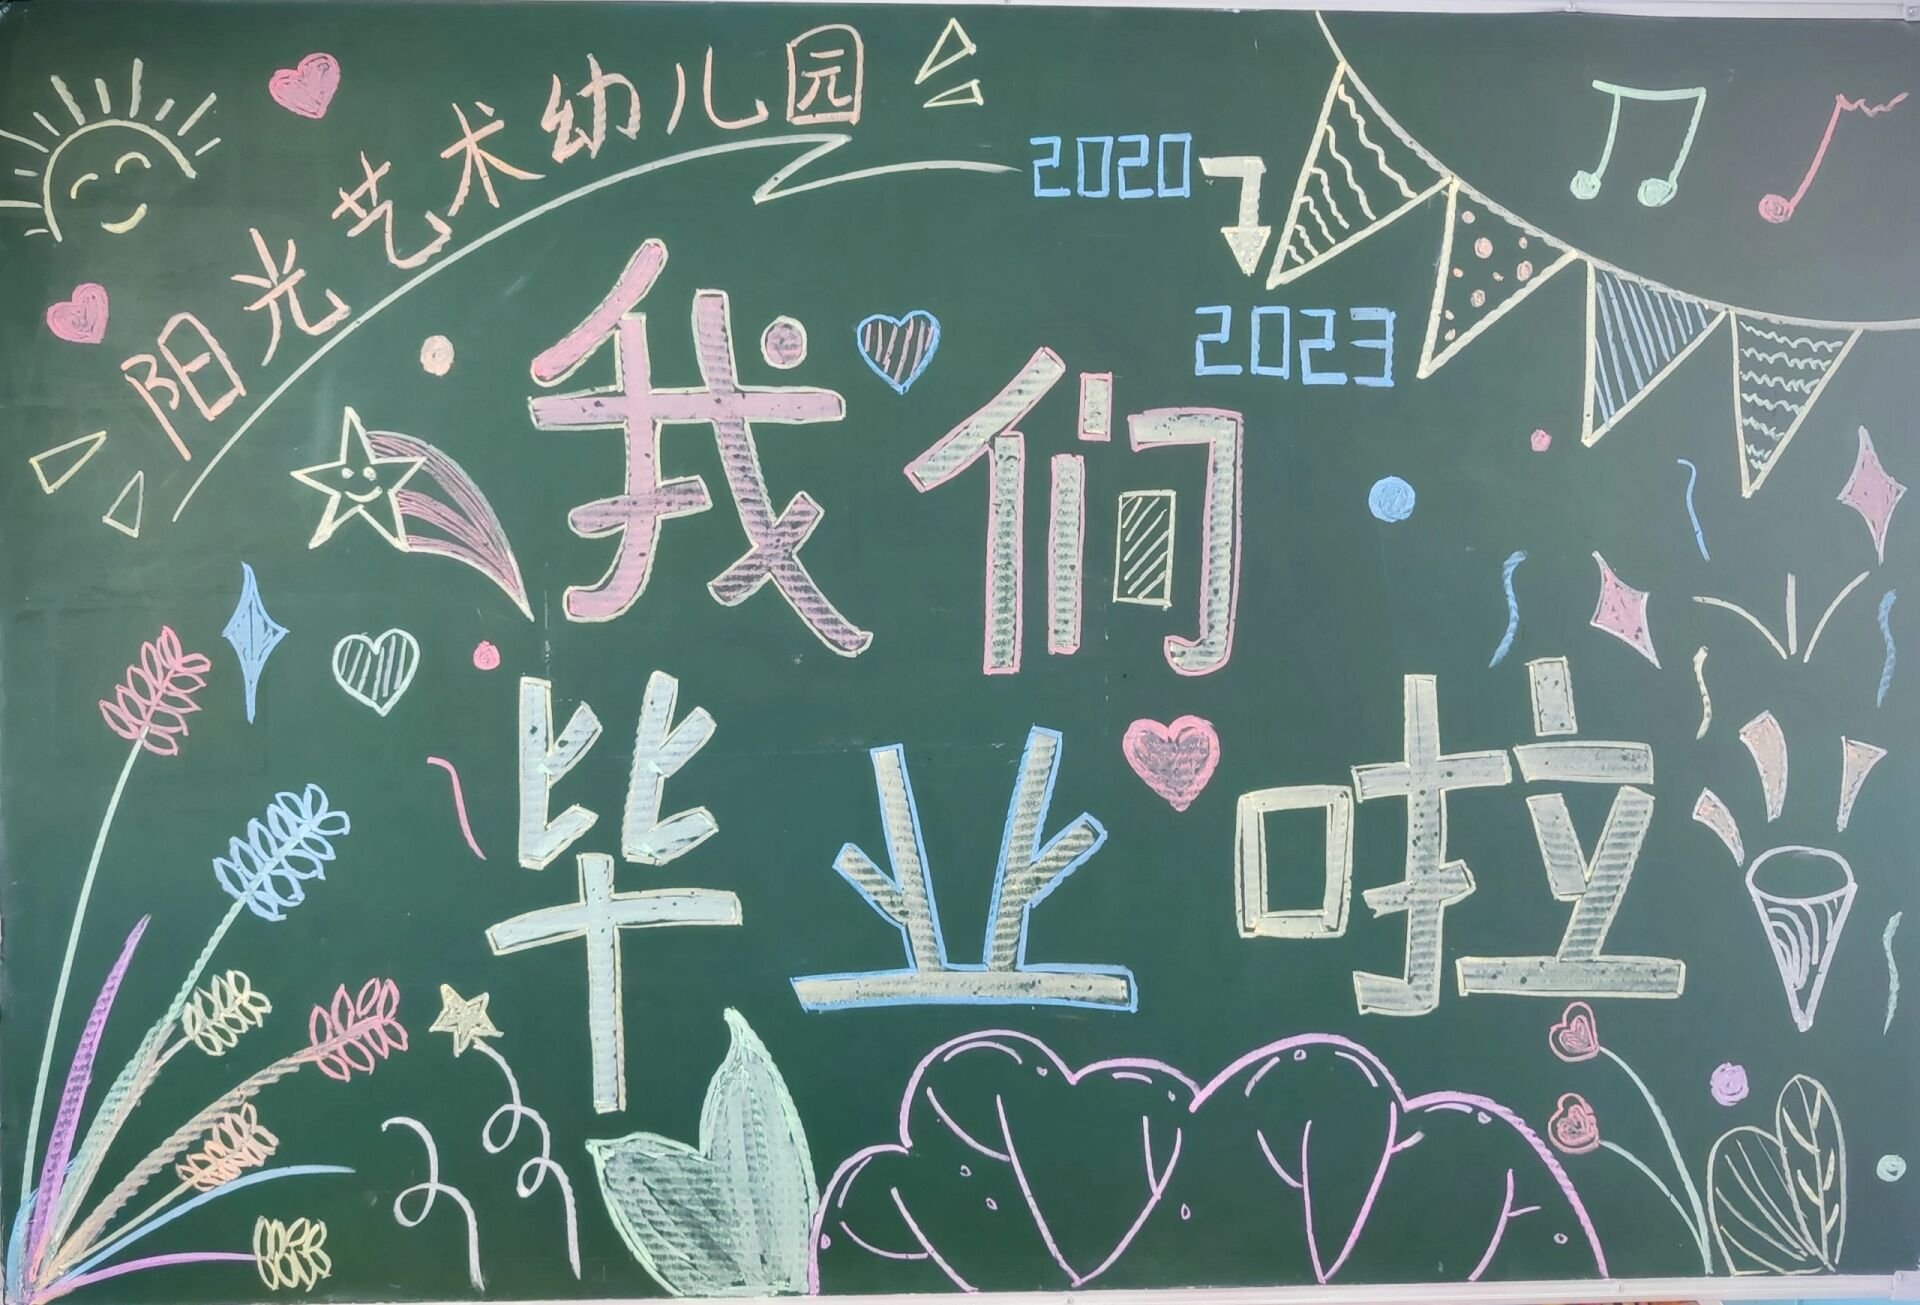 阳光艺术幼儿园
2020
2023
我们
毕业啦